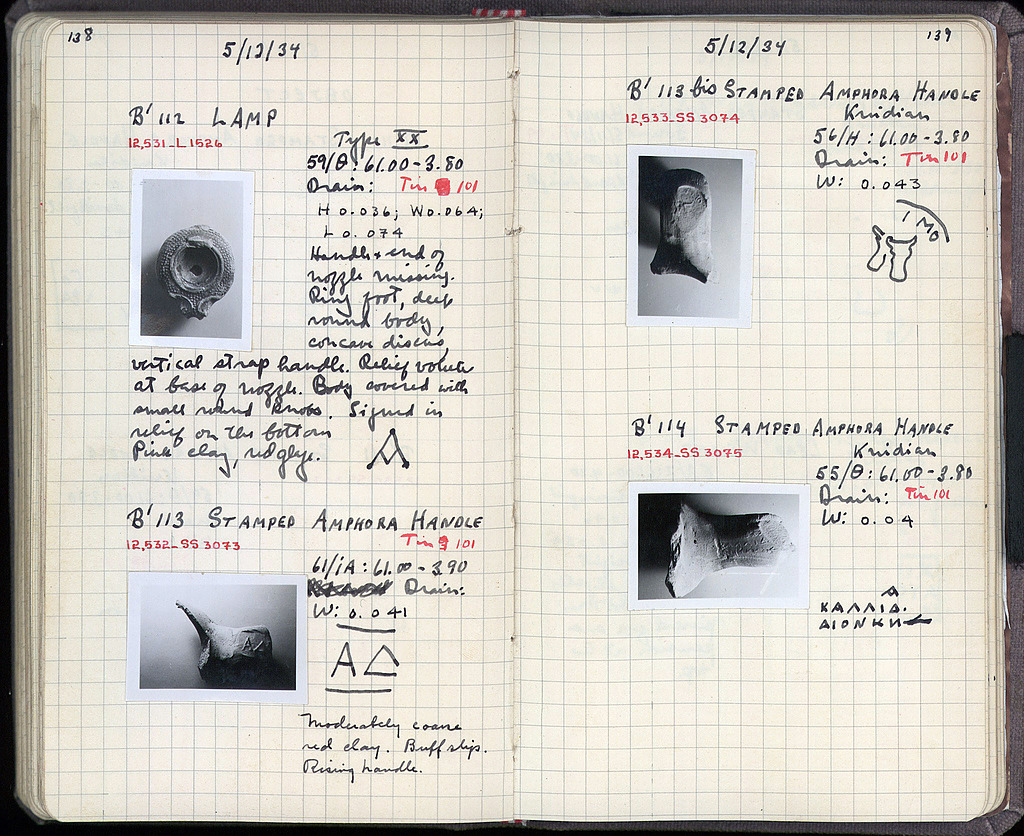 138
5/12/34
B' 112 LAMP
12,531_L 1526
Type XX
59/Θ: 61.00-3.80
Drain: Tin 101
H 0.036; W 0.064;
L 0.074
Handle & end of
nozzle missing.
Ring foot, deep
round body,
concave discus,
vertical strap handle. Relief volute
at base of nozzle. Body covered with
small round knobs. Signed in
relief on the bottom
Pink clay, red glaze.
B' 113 STAMPED AMPHORA HANDLE
12,532_SS 3073
Tin 101
61/ΙΑ: 61.00-3.90
Drain:
W: 0.041
ΑΔ
Moderately coarse
red clay. Buff slip.
Rising handle.
139
5/12/34
B' 113 bis STAMPED AMPHORA HANDLE
12,533_SS 3074
Knidian
56/H: 61.00-3.80
Drain: Tin 101
W: 0.043
B' 114 STAMPED AMPHORA HANDLE
12,534_SS 3075
Knidian
55/Θ: 61.00-3.80
Drain: Tin 101
W: 0.04
Α
ΚΑΛΛΙΔ.
ΔΙΟΝΚΝ